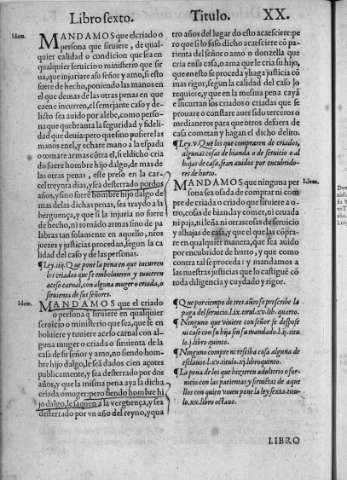 Libro sexto. Titulo. XX.
Idem.
MANDAMOS que el criado o
persona que siruiere, de qual-
quier calidad o condicion que sea en
qualquier seruicio o ministerio que sir
ua, que injuriare a su señor y amo, si esto
fuere de hecho, poniendo las manos en
el que demas de las otras penas en que
cae e incurre, el semejante caso y de-
licto sea auido por aleue, como perso-
na que quebranta la seguridad y fideli-
dad que deuia pero que sino pusiere las
manos en el, y echare mano a la espada
o tomare armas contra el, si el dicho cria
do fuere hombre hijo dalgo, de mas de
las otras penas, este preso en la car-
cel treynta dias, y sea desterrado por dos
años, y sin o fuere hombre hijo dalgo de
mas delas dichas penas, sea traydo a la
verguença, y que si la injuria no fuere
de hecho, ni tomãdo armas sino de pa-
labras tan solamente en aquello, nros
juezes y justicias procedan, segun la ca-
lidad del caso y de las personas.
¶ Ley.iiij. Que pone la pena en que incurren
los criados que se emboluieren y tuuieren
acceso carnal, con alguna muger o criada, o
siruienta de sus señores.
Idem.
MANDAMOS que el criado
o persona q̃ siruiere en qualquier
seruicio o ministerio que sea, que se en
boluiere y tuuiere acceso carnal con al-
guna muger o criada o siruienta de la
casa de su señor y amo, no siendo hom-
bre hijo dalgo, le seã dados cien açotes
publicamente, y sea desterrado por dos
años, y que la misma pena aya la dicha
criada, o muger: pero siendo hombre hi
jo dalgo, le saquen a la verguẽça, y sea
desterrado por vn año del reyno, y qua
tro años del lugar do esto acaesciere: pe
ro que si lo suso dicho acaesciere cõ pa-
rienta del señor o amo o donzella que
cria en su casa, o ama que le cria su hijo,
que en esto se proceda y haga justicia cõ
mas rigor, segun la calidad del caso lo
requiere, y que en la misma pena caya
e incurran los criados o criadas que se
prouare o constare auer sido terceros o
medianeros para que otros defuera de
casa cometan y hagan el dicho delito.
¶ Ley.v. Que los que compraren de criados,
algunas cosas de bianda o de seruicio o al
hajas de casa, sean auidos por encubrido-
res de hurto.
Idem.
MANDAMOS que ninguna per
sona sea osada de comprar ni com
prar de criada o criado que siruiere a o-
tro, cosas de bianda y comer, ni ceuada
ni paja, ni leña, ni otras cosas de seruicio
y alhajas de casa, y que el que las cõpra-
re en qualquier manera, que sea auido
por encubridor de hurto, y que como
contra tal se proceda: y mandamos a
las nuestras justicias que lo castiguẽ cõ
toda diligencia y cuydado y rigor.
¶ Que por tiempo de tres años se prescribe la
paga del seruicio.l.ix.titul.xv.lib. quarto.
¶ Ninguno que viuiere con señor se despose
ni case con su hija sin su mandado.l.ij.titu
lo.j.libro quinto.
¶ Ninguno compre ni resciba cosa alguna de
esclauos.l.xv.titulo.xj.libro quinto.
¶ La pena de los que hizieren adulterio o for-
nicio con las parientas y siruientas de aque
llos con quien viuen pone la ley sexta titu-
lo.xx.libro octauo.
LIBRO